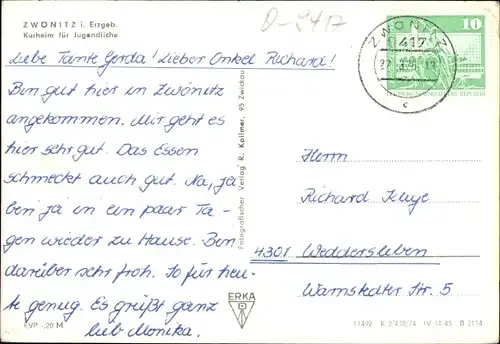 ZWÖNITZ i. Erzgeb.
Kurheim für Jugendliche
D-9417
Liebe Tante Gerda! Lieber Onkel Richard!
Bin gut hier in Zwönitz
angekommen. Mir geht es
hier sehr gut. Das Essen
schmeckt auch gut. Na, ja
bin ja in ein paar Ta-
gen wieder zu Hause. Bin
darüber sehr froh. So für heu-
te genug. Es grüßt ganz
lieb Monika.
EVP -,20 M
Fotografischer Verlag R. Kallmer, 95 Zwickau
ERKA
ZWÖNITZ
9417
c
10
DEUTSCHE DEMOKRATISCHE REPUBLIK
Herrn
Richard
4301 Weddersleben
Warnstedter Str. 5
11492 R 2/438/74 IV-14-45 B 2114